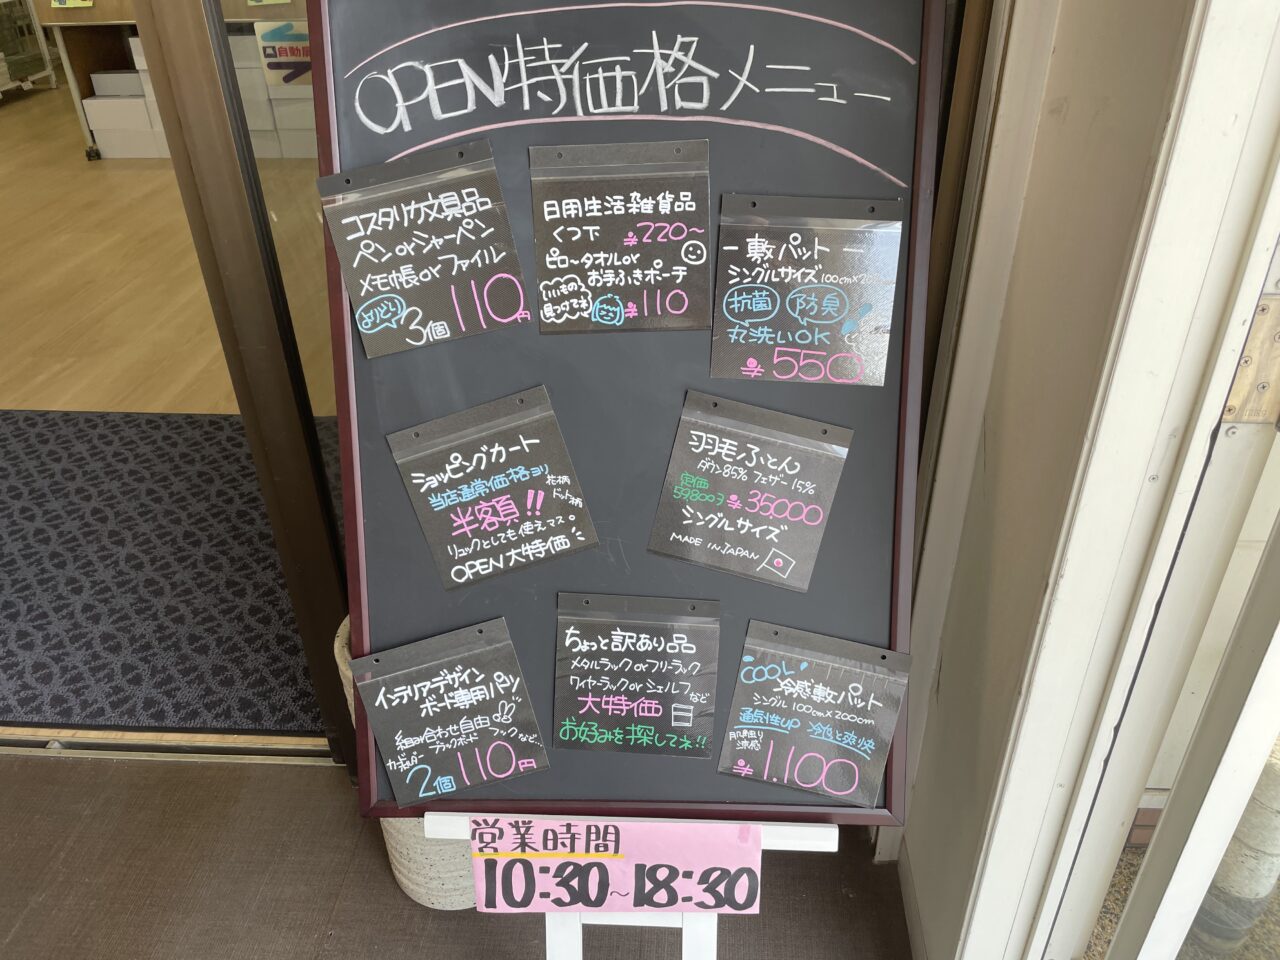 自動扉
OPEN特価格メニュー
コスタリカ文具品
ペンorシャーペン
メモ帳orファイル
よりどり
3個 110円
日用生活雑貨品
くつ下 ¥220〜
ピロ〜タオルor
お手ふきポーチ
いいもの
見つけてネ
¥110
ー敷パットー
シングルサイズ 100cm×20
抗菌 防臭
丸洗いOK
¥550
ショッピングカート
当店通常価格ヨリ
花柄
ドット柄
半額!!
リュックとしても使えマス。
OPEN大特価
羽毛ふとん
ダウン85% フェザー15%
定価
59800ヨリ
¥35000
シングルサイズ
MADE IN JAPAN
インテリアデザイン
ボード専用パーツ
組み合わせ自由
ブラックボード フックなど...
2個 110円
ちょっと訳あり品
メタルラックorフリーラック
ワイヤーラックorシェルフなど
大特価
お好みを探してネ!!
COOL
冷感敷パット
シングル 100cm×200cm
通気性up 冷んと爽快
肌触り
涼感
¥1.100
営業時間
10:30〜18:30